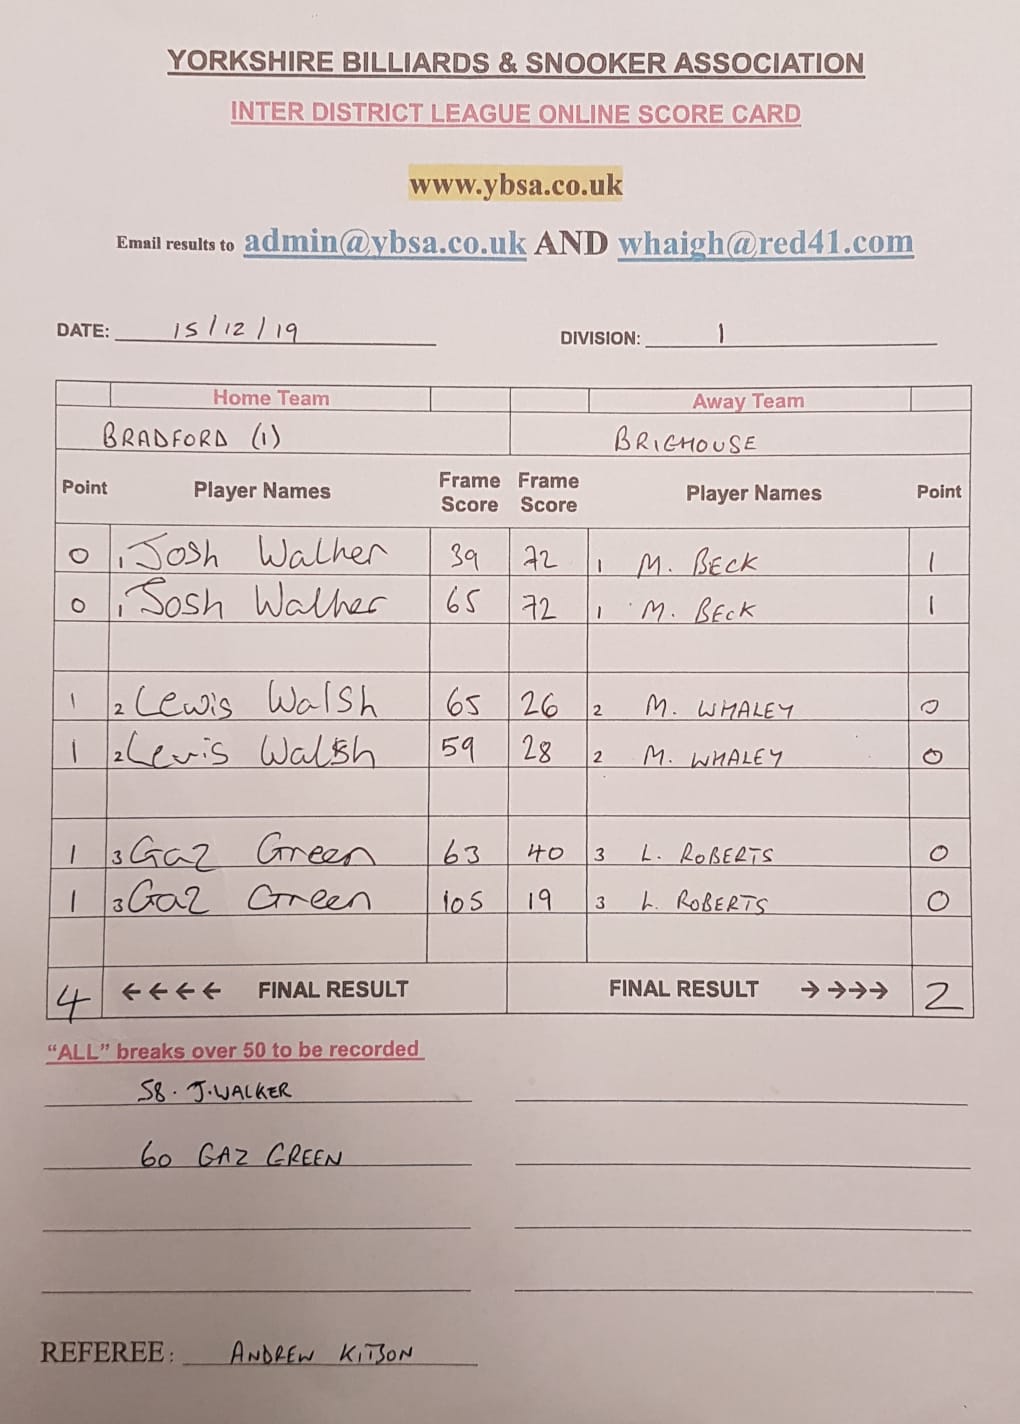 YORKSHIRE BILLIARDS & SNOOKER ASSOCIATION
INTER DISTRICT LEAGUE ONLINE SCORE CARD
www.ybsa.co.uk
Email results to admin@ybsa.co.uk AND whaigh@red41.com
DATE: 15/12/19 DIVISION: 1
Home Team Away Team
BRADFORD (1) BRIGHOUSE
Point Player Names Frame Score Frame Score Player Names Point
0 1 Josh Walker 39 72 1 M. BECK 1
0 1 Josh Walker 65 72 1 M. BECK 1
1 2 Lewis Walsh 65 26 2 M. WHALEY 0
1 2 Lewis Walsh 59 28 2 M. WHALEY 0
1 3 Gaz Green 63 40 3 L. ROBERTS 0
1 3 Gaz Green 105 19 3 L. ROBERTS 0
4 ←←←← FINAL RESULT FINAL RESULT →→→→ 2
“ALL” breaks over 50 to be recorded
58. J.WALKER
60 GAZ GREEN
REFEREE: ANDREW KITSON